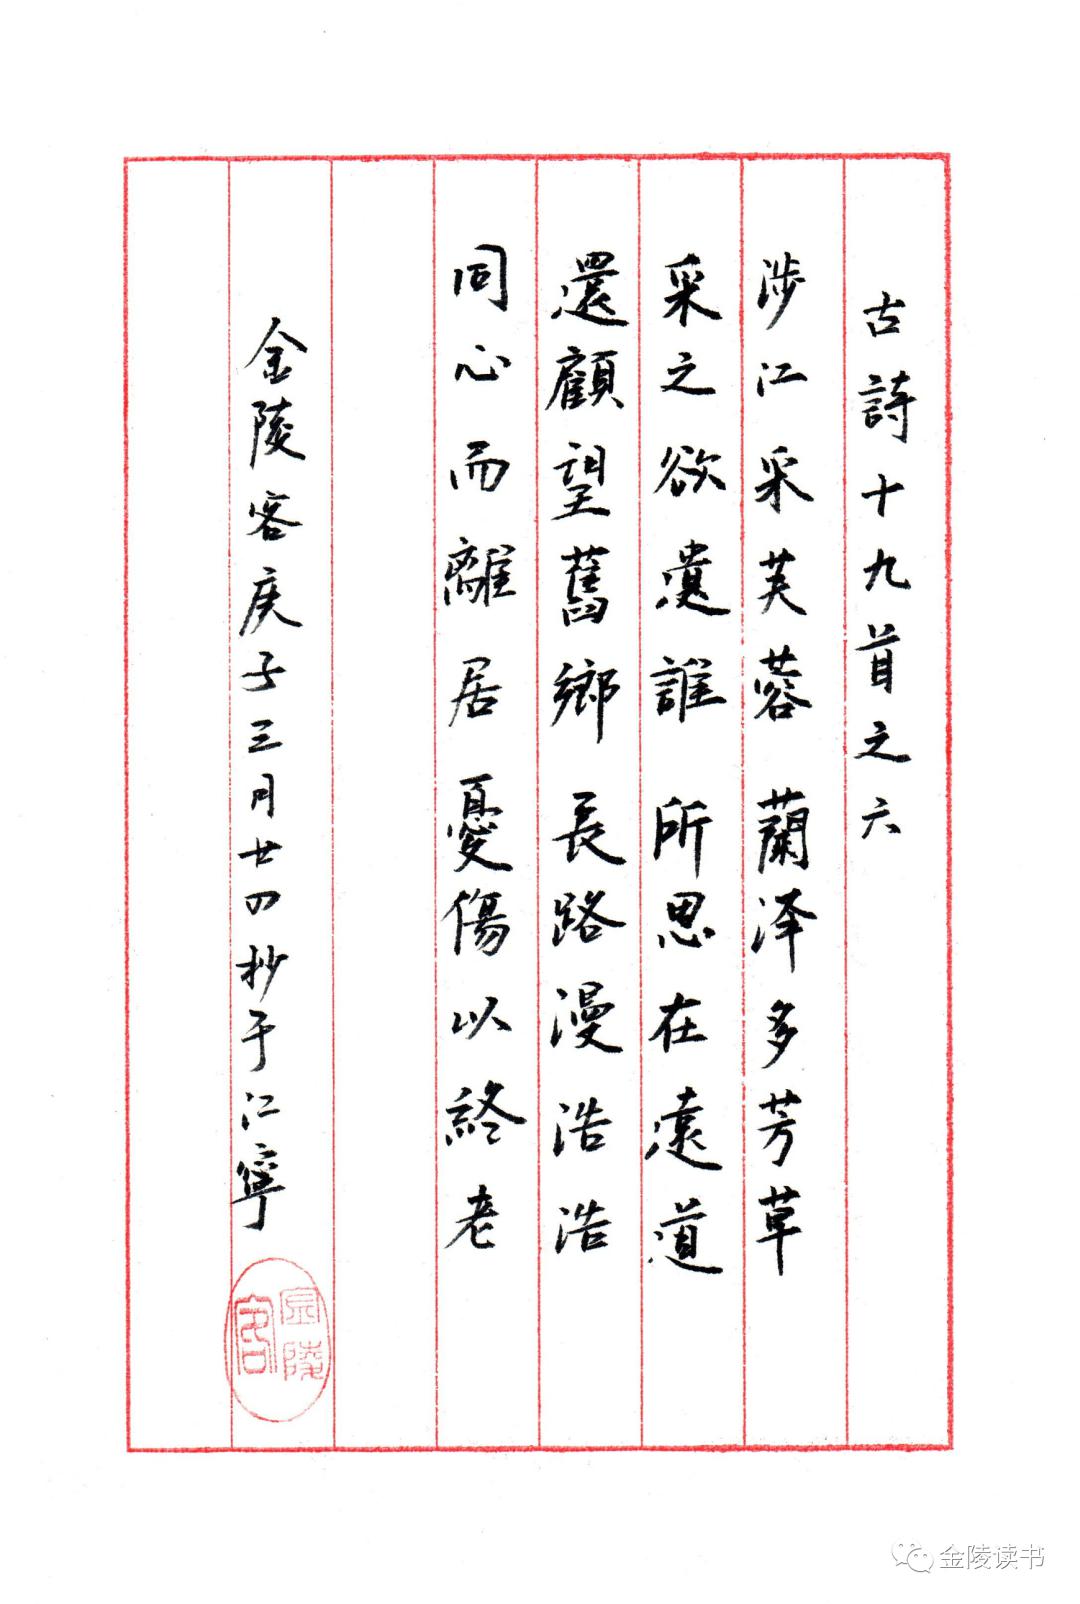 古詩十九首之六
涉江采芙蓉蘭泽多芳草
采之欲遺誰所思在遠道
還顧望舊鄉長路漫浩浩
同心而離居憂傷以終老
金陵客庚子三月廿四抄于江寧
金陵客
金陵读书